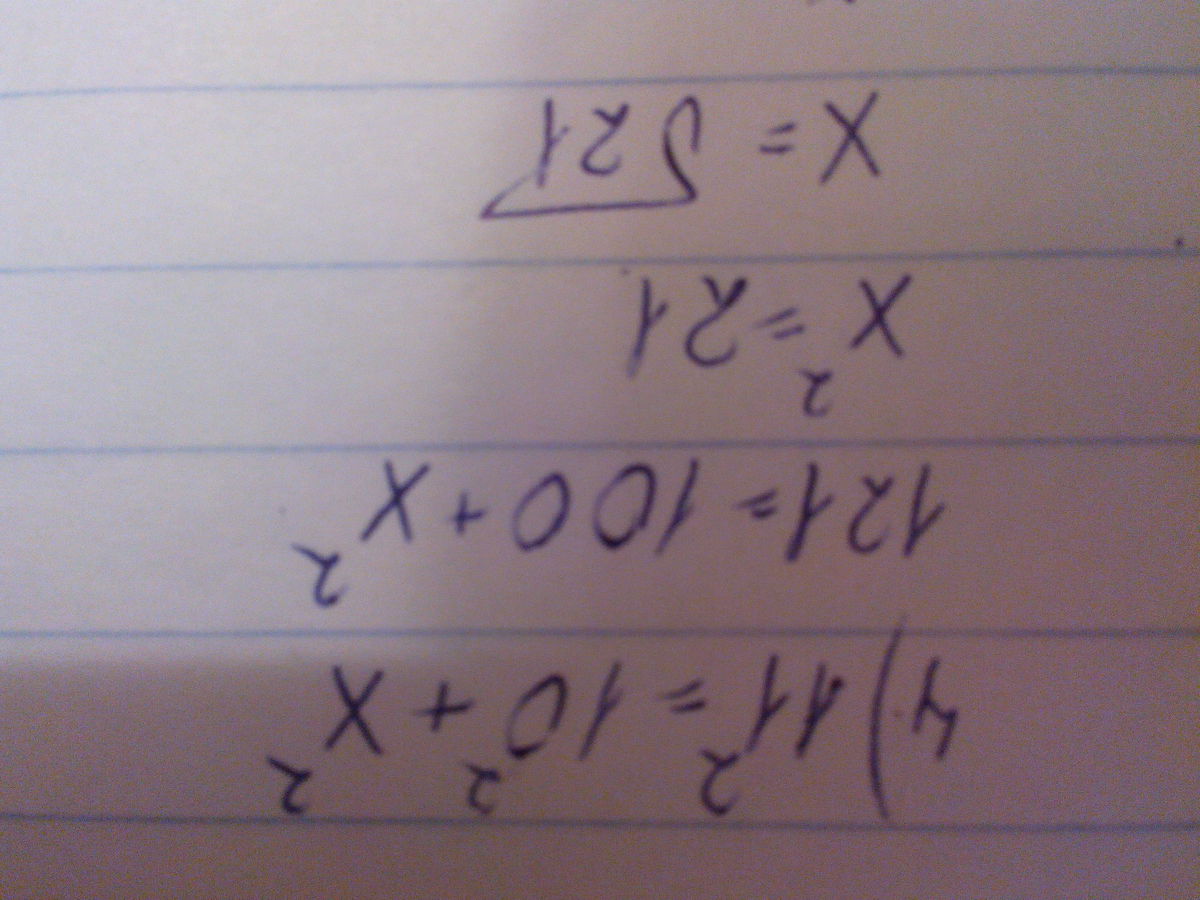 4) 11² = 10² + X²
121 = 100 + X²
X² = 21
X = √21